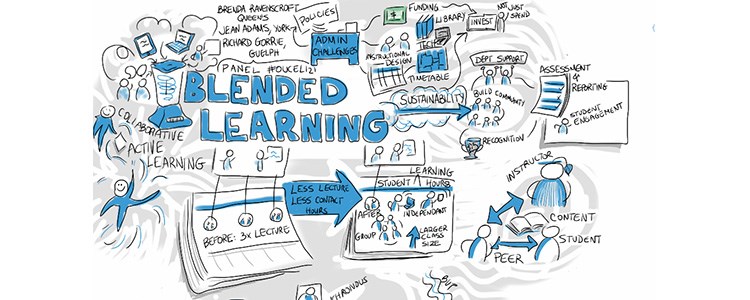 BRENDA RAVENSCROFT
QUEEN'S
JEAN ADAMS, YORK
RICHARD GORRIE,
GUELPH
PANEL #OUCEL121
BLENDED
LEARNING
POLICIES
ADMIN
CHALLENGES
FUNDING
LIBRARY
TECH
INSTRUCTIONAL
DESIGN
TIMETABLE
INVEST
NOT JUST
SPEND
SUSTAINABILITY
DEPT SUPPORT
BUILD COMMUNITY
RECOGNITION
ASSESSMENT
&
REPORTING
STUDENT
ENGAGEMENT
COLLABORATIVE
ACTIVE
LEARNING
BEFORE: 3x LECTURE
LESS LECTURE
LESS CONTACT
HOURS
STUDENT LEARNING HOURS
AFTER
INDEPENDANT
GROUP
LARGER
CLASS
SIZE
INSTRUCTOR
CONTENT
STUDENT
PEER